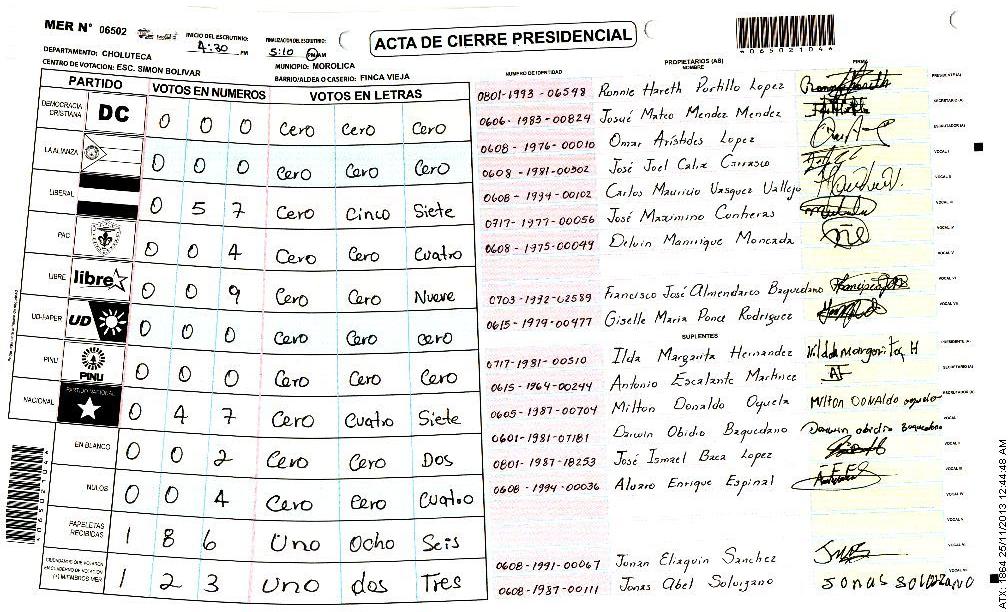 MER N° 06502
INICIO DEL ESCRUTINIO: 4:30 PM
FINALIZACION DEL ESCRUTINIO: 5:10 PM AM
ACTA DE CIERRE PRESIDENCIAL
*065021046*
DEPARTAMENTO: CHOLUTECA
MUNICIPIO: MOROLICA
CENTRO DE VOTACION: ESC. SIMON BOLIVAR
BARRIO/ALDEA O CASERIO: FINCA VIEJA
PARTIDO VOTOS EN NUMEROS VOTOS EN LETRAS
DEMOCRACIA CRISTIANA DC 0 0 0 Cero Cero Cero
LA ALIANZA 0 0 0 Cero Cero Cero
LIBERAL 0 5 7 Cero Cinco Siete
PAC 0 0 4 Cero Cero Cuatro
LIBRE libre 0 0 9 Cero Cero Nueve
UD-FAPER UD 0 0 0 Cero Cero Cero
PINU PINU 0 0 0 Cero Cero Cero
NACIONAL 0 4 7 Cero Cuatro Siete
EN BLANCO 0 0 2 Cero Cero Dos
NULOS 0 0 4 Cero Cero Cuatro
PAPELETAS RECIBIDAS 1 8 6 Uno Ocho Seis
1 2 3 Uno dos Tres
PROPIETARIOS (AS)
NUMERO DE IDENTIDAD NOMBRE FIRMA
0801-1993-06548 Ronnie Hareth Portillo Lopez PRESIDENTE(A)
0606-1983-00824 Josué Mateo Mendez Mendez SECRETARIO (A)
0608-1976-00010 Omar Arístides Lopez ESCRUTADOR (A)
0608-1981-00302 José Joel Calix Carrasco VOCAL I
0608-1994-00102 Carlos Mauricio Vasquez Vallejo VOCAL II
0717-1977-00056 José Maximino Contreras VOCAL III
0608-1975-00049 Delvin Manrrique Moncada VOCAL IV
VOCAL V
0703-1992-02589 Francisco José Almendares Baquedano VOCAL VI
0615-1979-00477 Giselle Maria Ponce Rodriguez VOCAL VII
SUPLENTES
0717-1981-00510 Ilda Margarita Hernandez Vilda Margarita H PRESIDENTE (A)
0615-1964-00244 Antonio Escalante Martinez AF SECRETARIO(A)
0605-1987-00704 Milton Donaldo Oyuela Milton DONALDO oyuela
0601-1981-07181 Darwin Obidio Baquedano Darwin obidio Baquedano
0801-1987-18253 José Ismael Baca Lopez
0608-1994-00036 Alvaro Enrique Espinal
0608-1991-00067 Jonan Eliaquin Sanchez
0608-1987-00111 Jonas Abel Solorzano JONAS SOLORZANO
*065021046*
25/11/2013 12:44:48 AM